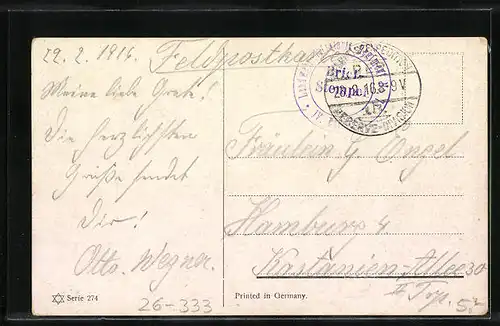 29. 2. 1916. Feldpostkarte
Meine liebe Grete!
Die herzlichsten
Grüße sendet
Dir!
Otto. Wegner.
Brief-
Stempel
Fräulein G. Engel
Hamburg 4
Kastanien-Allee 30
II Trp.
Serie 274
26-333
Printed in Germany.